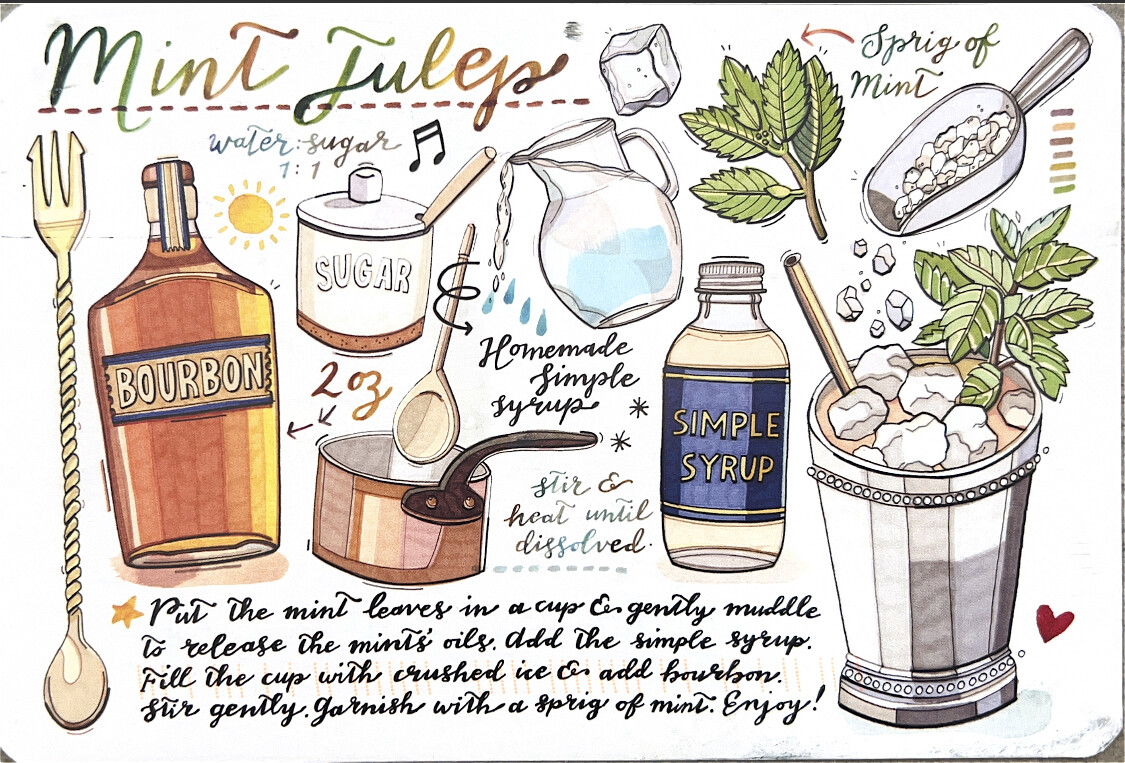 Mint Juleps
Sprig of
Mint
water:sugar
1:1
SUGAR
BOURBON
2 oz
Homemade
simple
syrup
SIMPLE
SYRUP
stir &
heat until
dissolved.
Put the mint leaves in a cup & gently muddle
to release the mints' oils. Add the simple syrup.
Fill the cup with crushed ice & add bourbon.
Stir gently. Garnish with a sprig of mint. Enjoy!